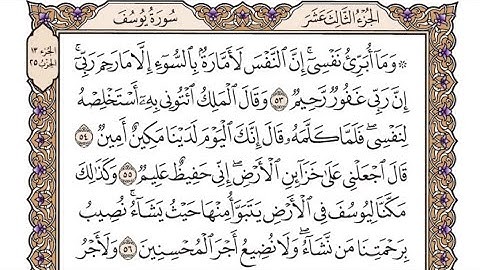 سُورَةُ يُوسُفَ
الجُزْءُ الثَّالِثَ عَشَرَ
الجزء ١٣
الحزب ٢٥
۞ وَمَآ أُبَرِّئُ نَفۡسِيٓۚ إِنَّ ٱلنَّفۡسَ لَأَمَّارَةُۢ بِٱلسُّوٓءِ إِلَّا مَا رَحِمَ رَبِّيٓۚ
إِنَّ رَبِّي غَفُورٞ رَّحِيمٞ ٥٣ وَقَالَ ٱلۡمَلِكُ ٱئۡتُونِي بِهِۦٓ أَسۡتَخۡلِصۡهُ
لِنَفۡسِيۖ فَلَمَّا كَلَّمَهُۥ قَالَ إِنَّكَ ٱلۡيَوۡمَ لَدَيۡنَا مَكِينٌ أَمِينٞ ٥٤
قَالَ ٱجۡعَلۡنِي عَلَىٰ خَزَآئِنِ ٱلۡأَرۡضِۖ إِنِّي حَفِيظٌ عَلِيمٞ ٥٥ وَكَذَٰلِكَ
مَكَّنَّا لِيُوسُفَ فِي ٱلۡأَرۡضِ يَتَبَوَّأُ مِنۡهَا حَيۡثُ يَشَآءُۚ نُصِيبُ
بِرَحۡمَتِنَا مَن نَّشَآءُۖ وَلَا نُضِيعُ أَجۡرَ ٱلۡمُحۡسِنِينَ ٥٦ وَلَأَجۡرُ